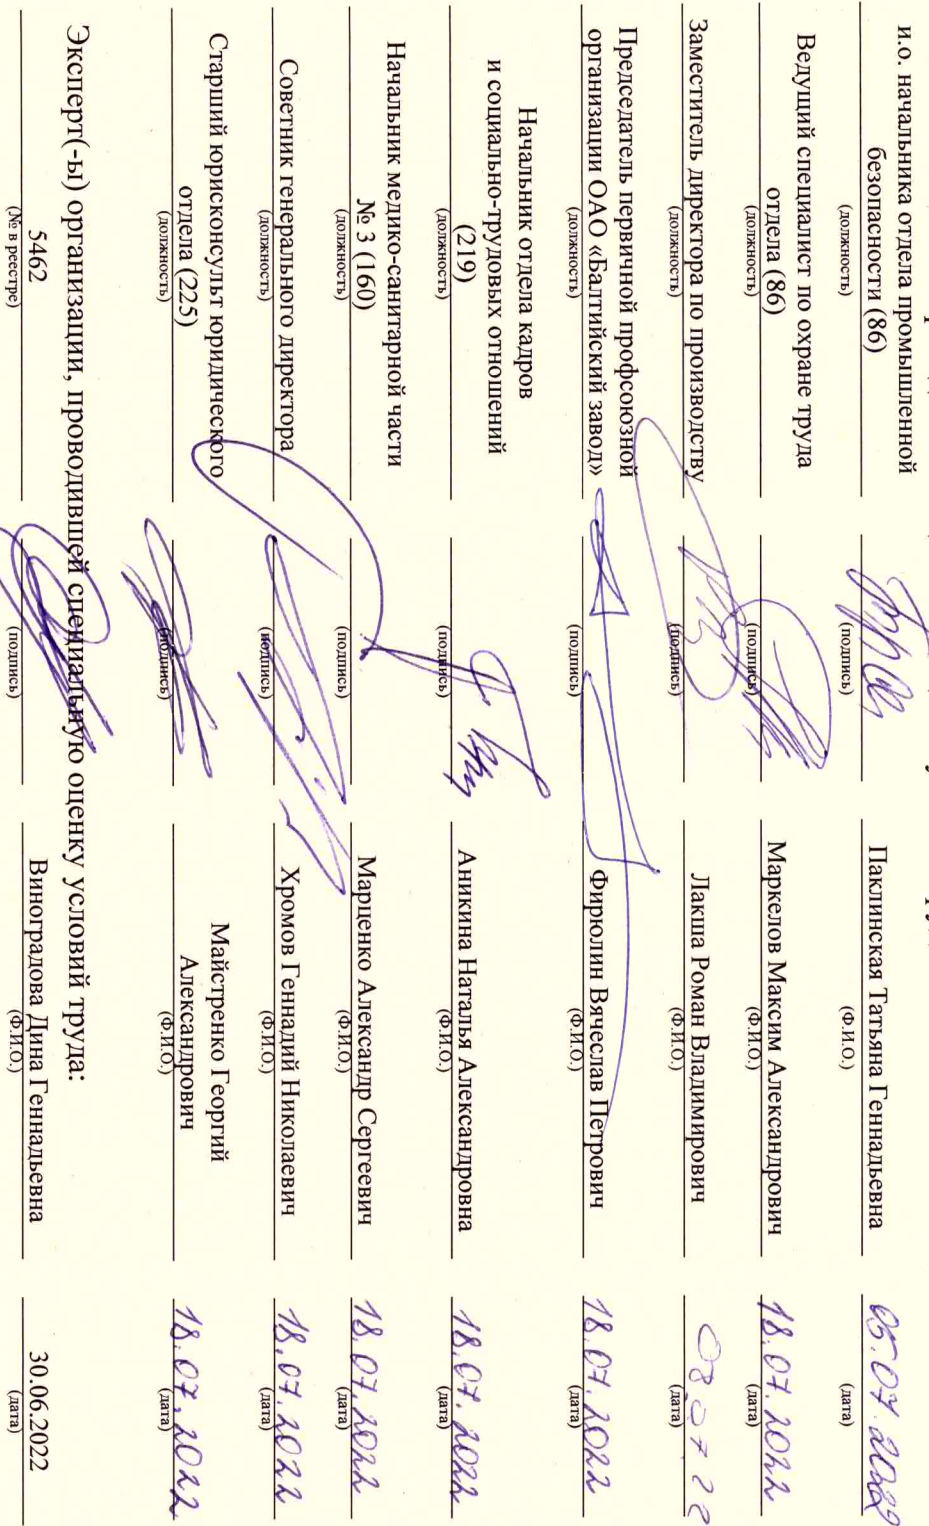 и.о. начальника отдела промышленной
безопасности (86) Паклинская Татьяна Геннадьевна 05.07.2022
(должность) (подпись) (Ф.И.О.) (дата)
Ведущий специалист по охране труда
отдела (86) Маркелов Максим Александрович 18.07.2022
(должность) (подпись) (Ф.И.О.) (дата)
Заместитель директора по производству Лакша Роман Владимирович 08 07 22
(должность) (подпись) (Ф.И.О.) (дата)
Председатель первичной профсоюзной
организации ОАО «Балтийский завод» Фирюлин Вячеслав Петрович 18.07.2022
(должность) (подпись) (Ф.И.О.) (дата)
Начальник отдела кадров
и социально-трудовых отношений
(219) Аникина Наталья Александровна 18.07.2022
(должность) (подпись) (Ф.И.О.) (дата)
Начальник медико-санитарной части
№ 3 (160) Марценко Александр Сергеевич 18.07.2022
(должность) (подпись) (Ф.И.О.) (дата)
Советник генерального директора Хромов Геннадий Николаевич 18.07.2022
(должность) (подпись) (Ф.И.О.) (дата)
Старший юрисконсульт юридического Майстренко Георгий
отдела (225) Александрович 18.07.2022
(должность) (подпись) (Ф.И.О.) (дата)
Эксперт(-ы) организации, проводившей специальную оценку условий труда:
5462 Виноградова Дина Геннадьевна 30.06.2022
(№ в реестре) (подпись) (Ф.И.О.) (дата)